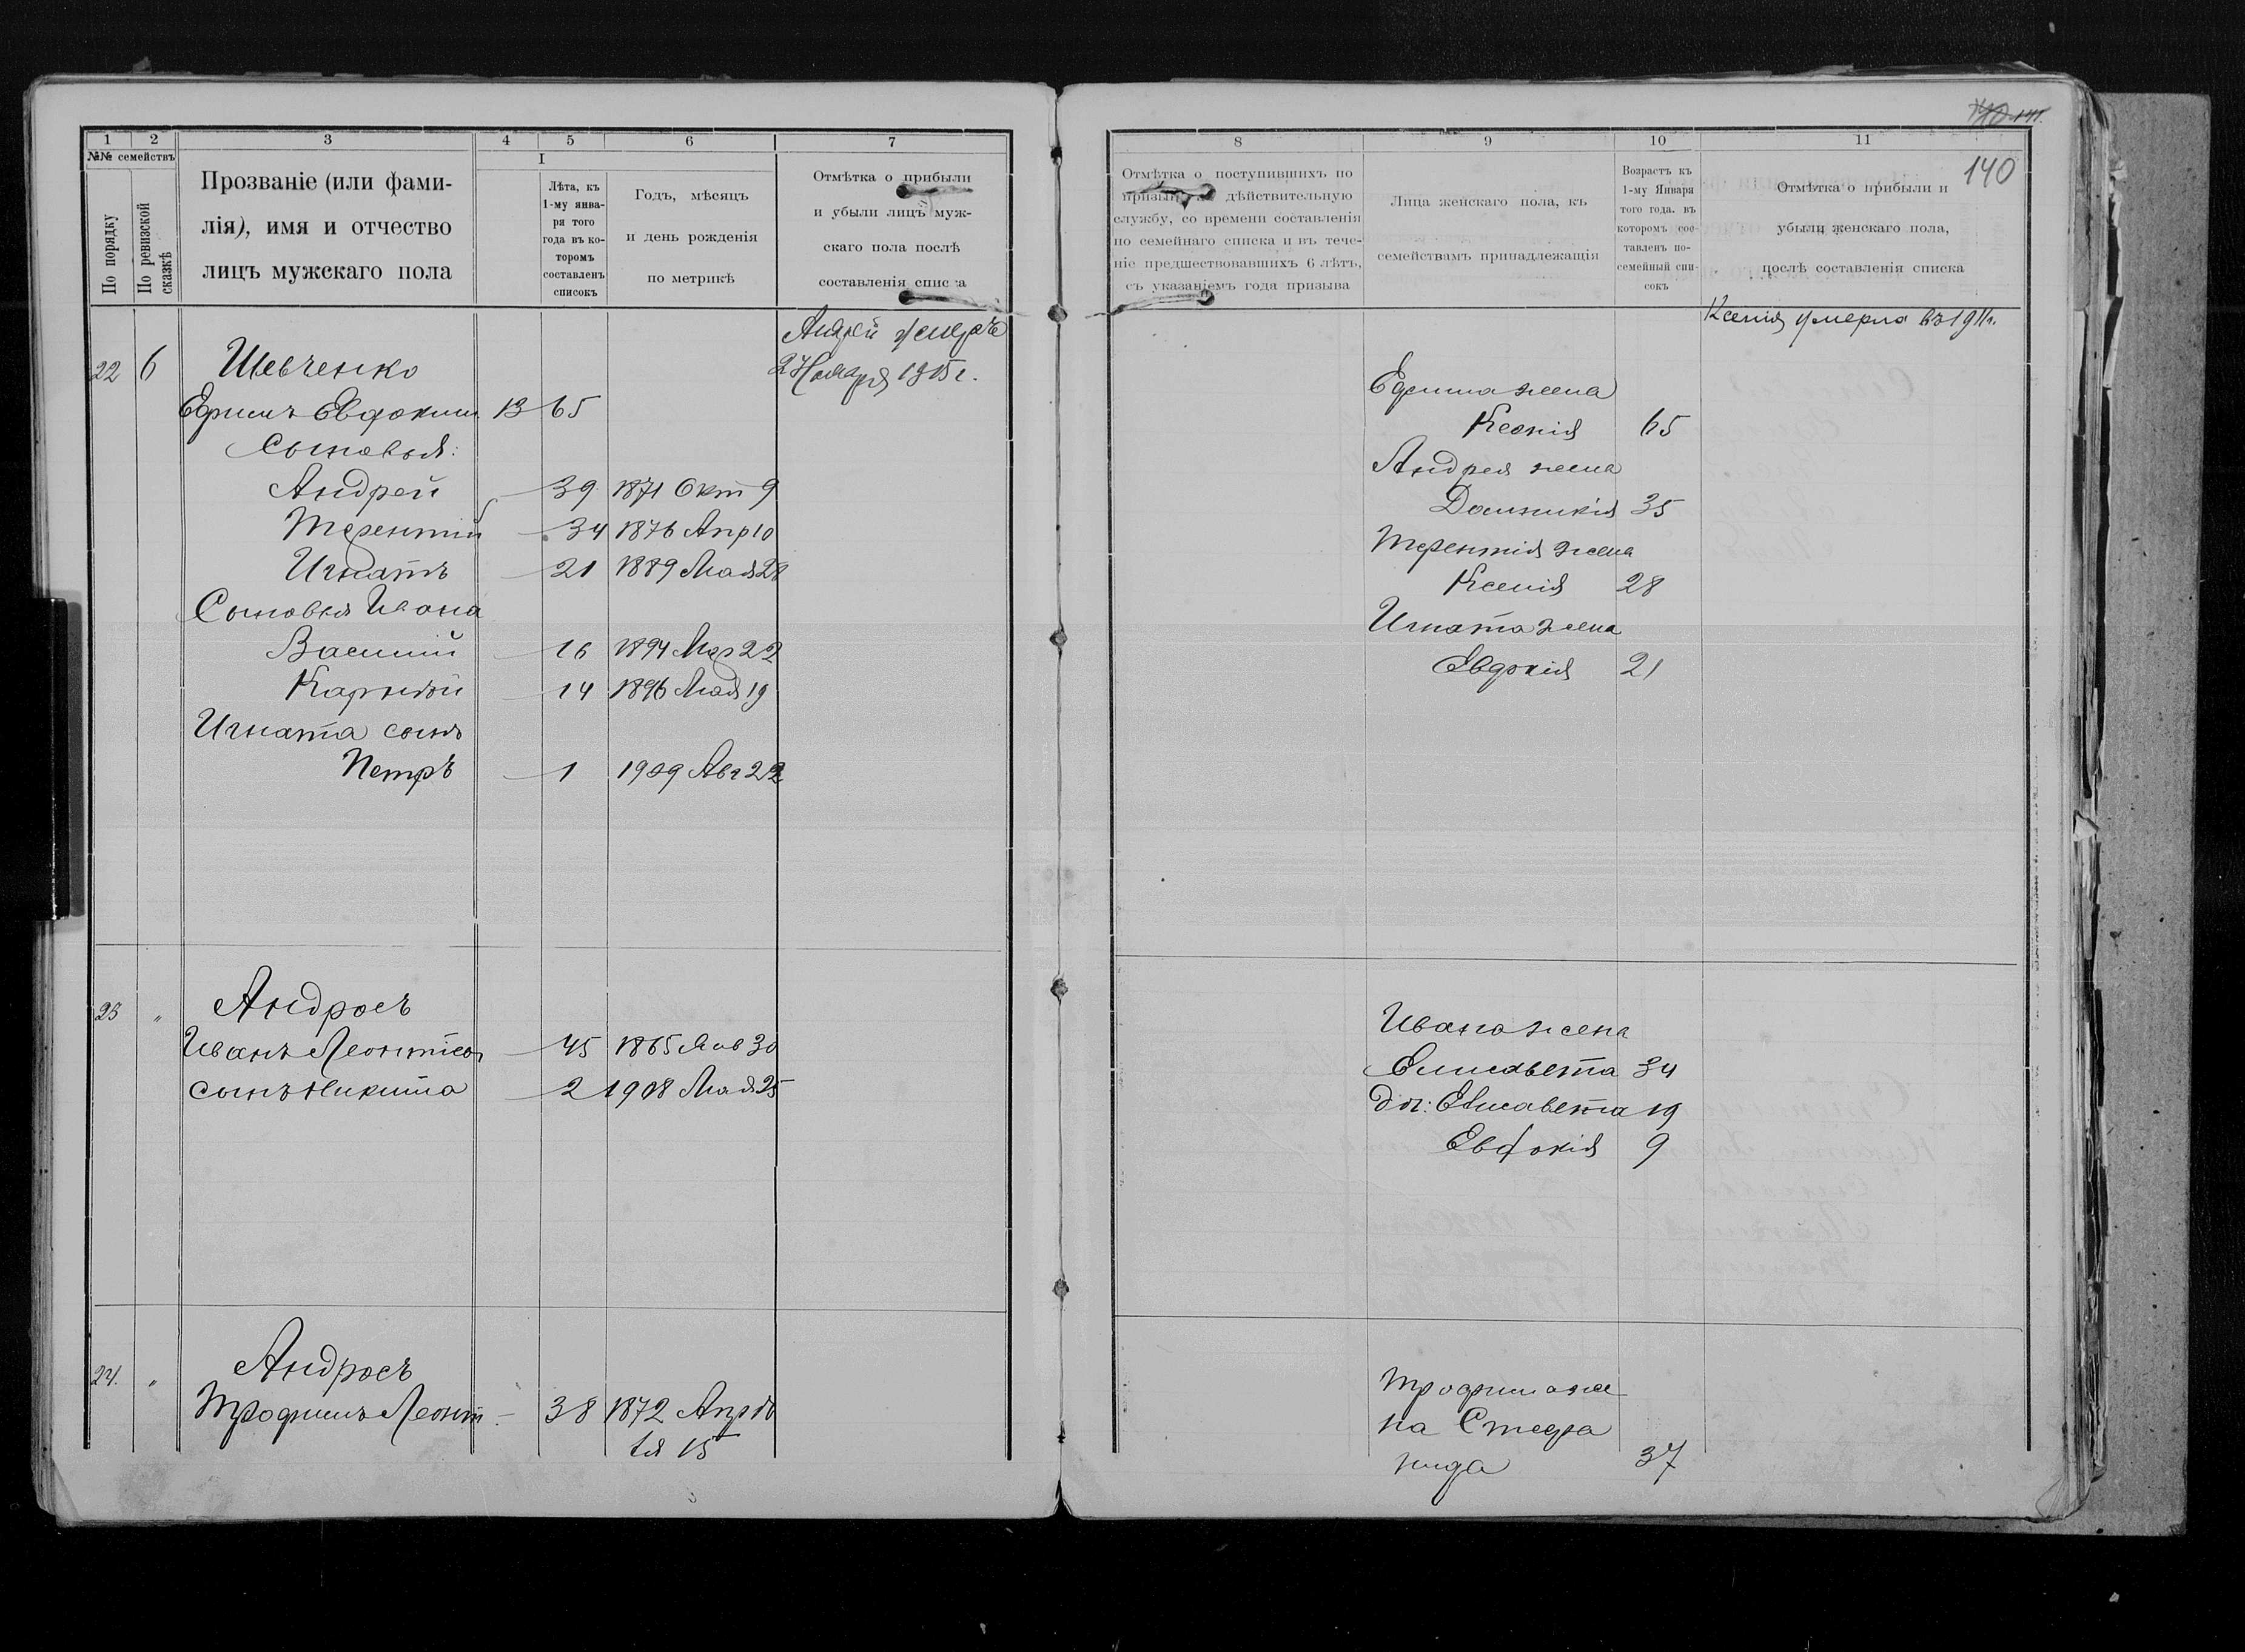 1 2 3 4 5 6 7
№№ семействъ
По порядку
По ревизской сказкѣ
Прозваніе (или фами-
лія), имя и отчество
лицъ мужскаго пола
I
Лѣта, къ
1-му янва-
ря того
года въ ко-
торомъ
составленъ
списокъ
Годъ, мѣсяцъ
и день рожденія
по метрикѣ
Отмѣтка о прибыли
и убыли лицъ муж-
скаго пола послѣ
составленія списка
Андрей умеръ
2 Января 1915 г.
22 6 Шевченко
Ефимъ Евдоким 13 65
Сыновья:
Андрей — 39 1871 Окт 9
Терентій — 34 1876 Апр 10
Игнатъ — 21 1889 Мая 28
Сыновья Ивана
Василий — 16 1894 Мар 22
Карней — 14 1896 Мая 19
Игната сынъ
Петръ — 1 1909 Авг 22
23 " Андросъ
Иванъ Леонтіев — 45 1865 Янв 30
сынъ Никита — 2 1908 Мая 25
24. " Андросъ
Трофимъ Леонт. — 38 1872 Апрѣ
ля 15
140
8 9 10 11
140
Отмѣтка о поступившихъ по
призыву на дѣйствительную
службу, со времени составленія
по семейнаго списка и въ тече-
ніе предшествовавшихъ 6 лѣтъ,
съ указаніемъ года призыва
Лица женскаго пола, къ
семействамъ принадлежащія
Возрастъ къ
1-му Января
того года. въ
которомъ сос-
тавленъ по-
семейный спи-
сокъ
Отмѣтка о прибыли и
убыли женскаго пола,
послѣ составленія списка
Ксенія умерла въ 1911 г.
Ефима жена
Ксенія 65
Андрея жена
Домникія 35
Терентія жена
Ксенія 28
Игната жена
Евдокія 21
Ивана жена
Елисавета 34
доч: Елисавета 19
Евдокія 9
Трофима же
на Стефа
нида 37